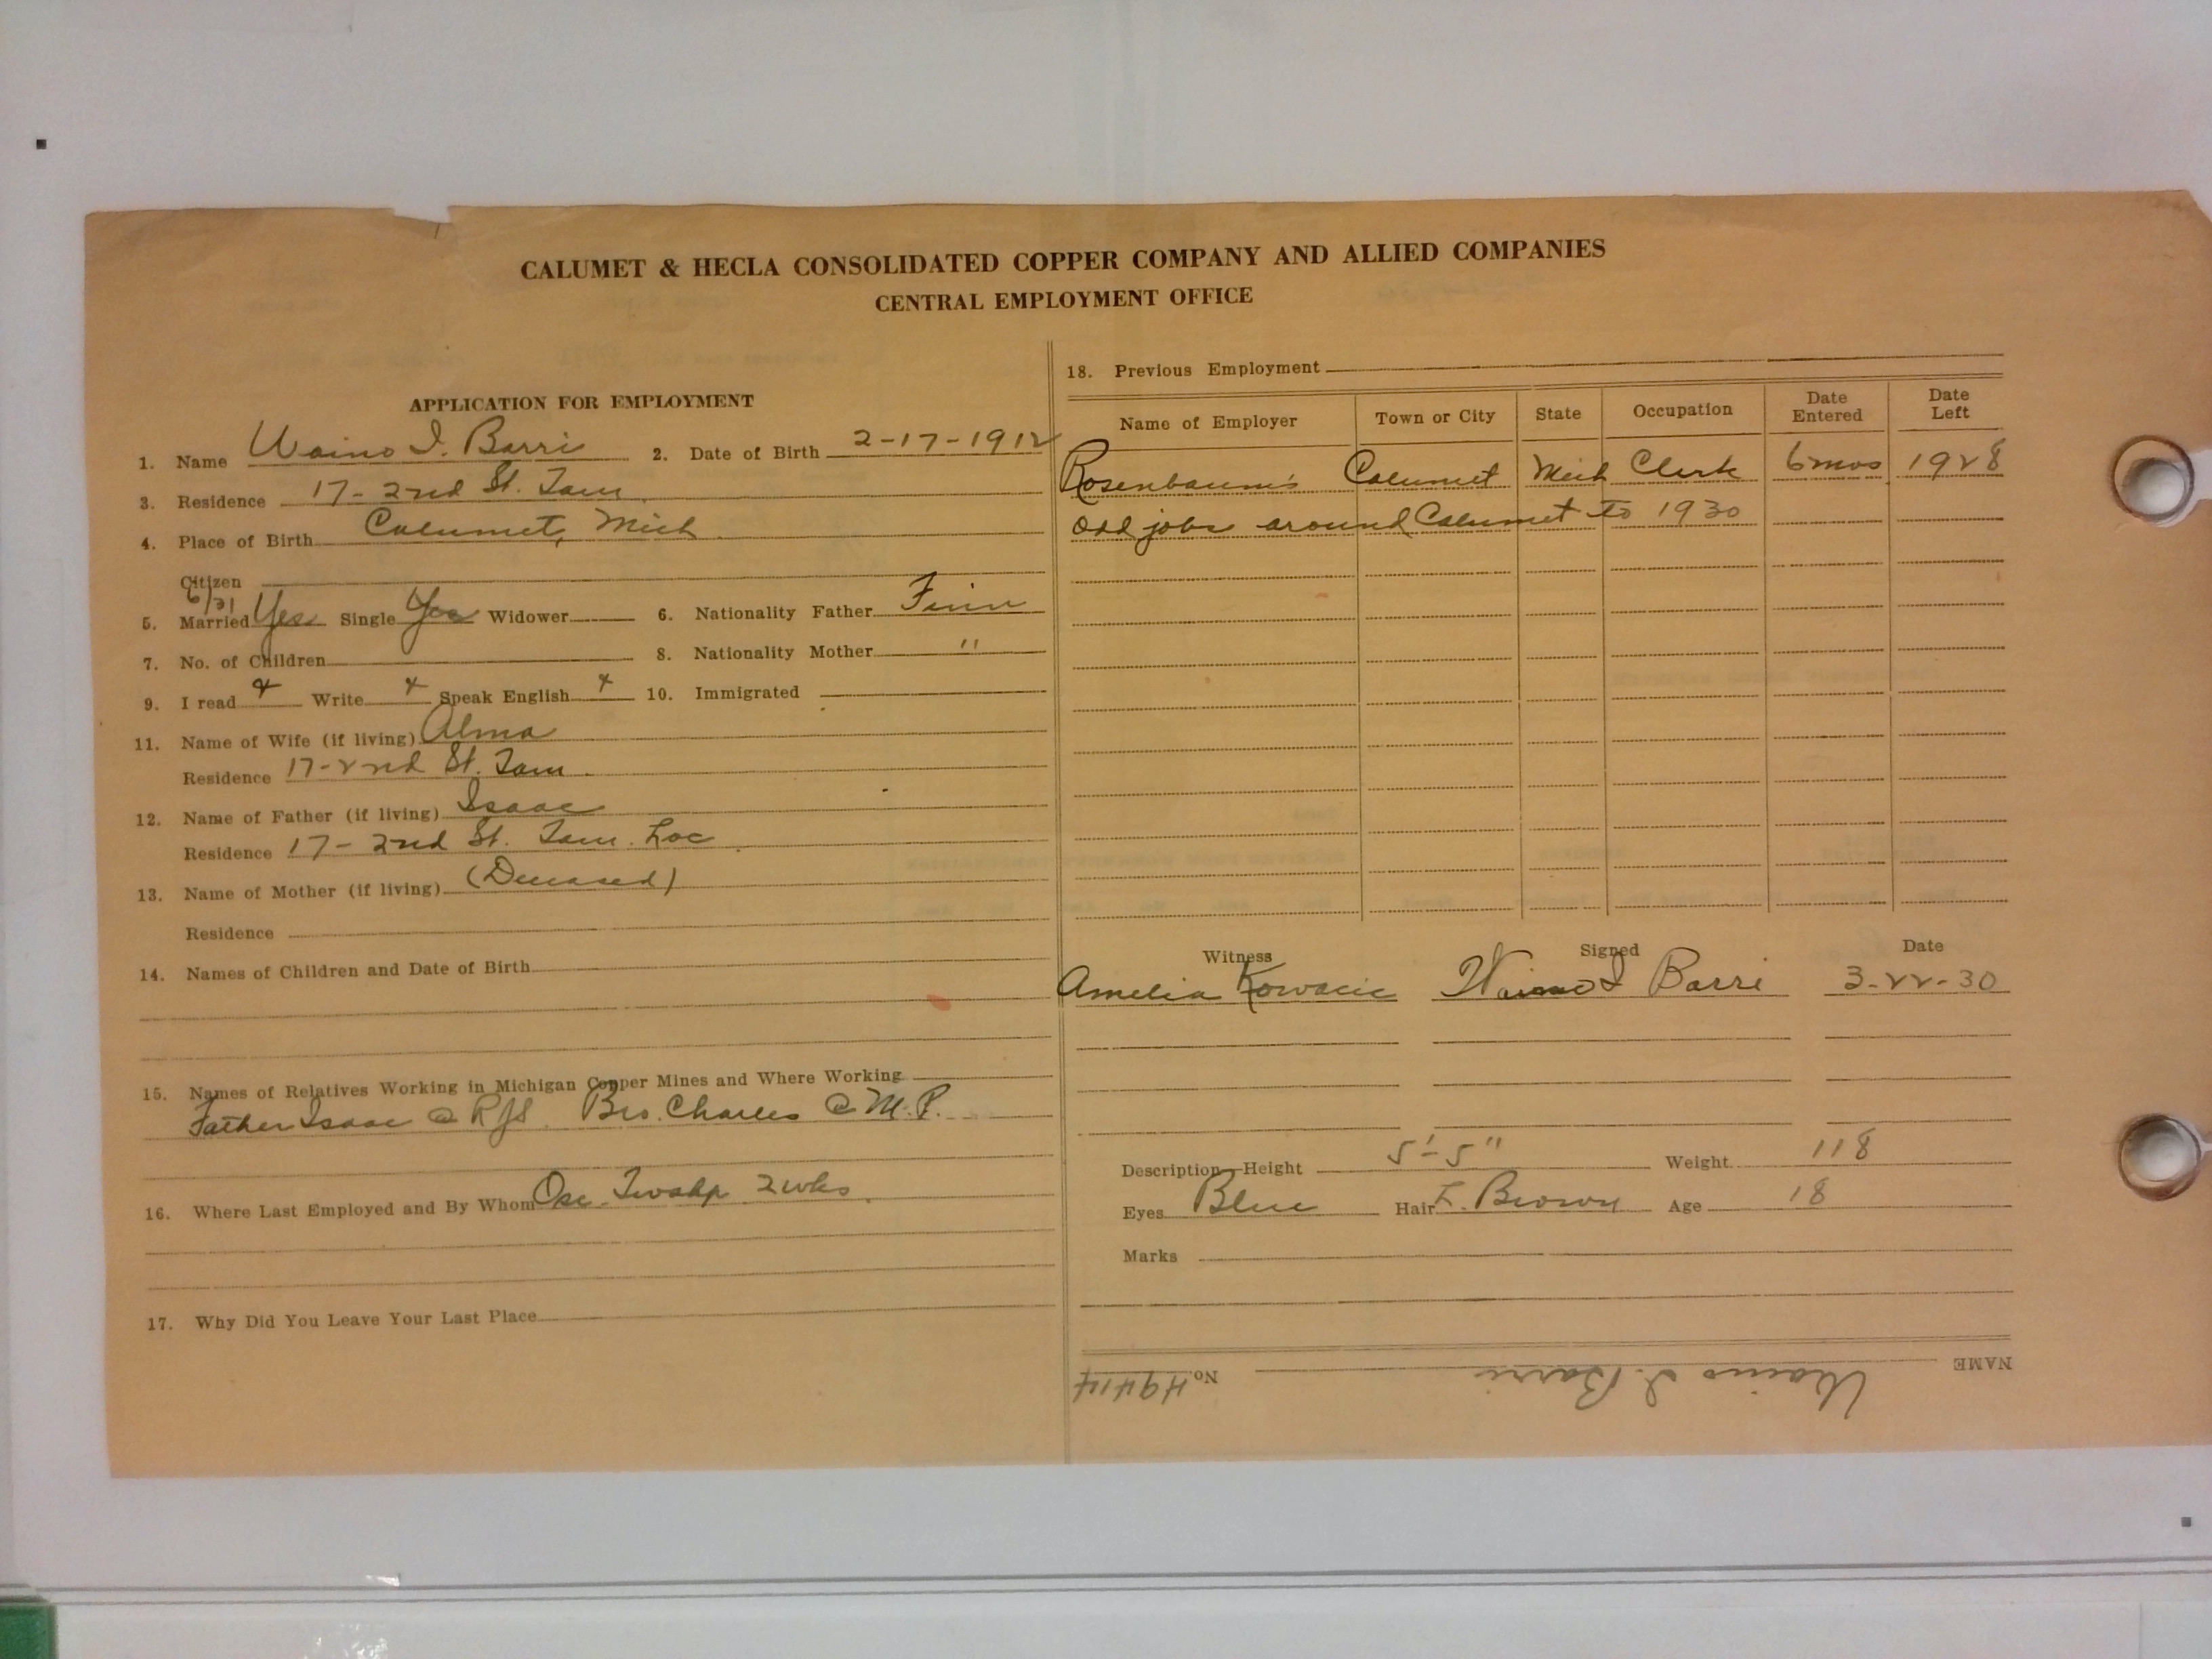 CALUMET & HECLA CONSOLIDATED COPPER COMPANY AND ALLIED COMPANIES
CENTRAL EMPLOYMENT OFFICE
APPLICATION FOR EMPLOYMENT
1. Name Waino I. Barri 2. Date of Birth 2-17-1912
3. Residence 17-2nd St. Tam.
4. Place of Birth Calumet, Mich
Citizen
6/31
5. Married Yes Single Yes Widower 6. Nationality Father Finn
7. No. of Children 8. Nationality Mother "
9. I read x Write x Speak English x 10. Immigrated
11. Name of Wife (if living) Alma
Residence 17-2nd St. Tam.
12. Name of Father (if living) Isaac
Residence 17-2nd St. Tam. Loc
13. Name of Mother (if living) (Deceased)
Residence
14. Names of Children and Date of Birth
15. Names of Relatives Working in Michigan Copper Mines and Where Working
Father Isaac @ Bro. Charles @ M.P.
16. Where Last Employed and By Whom Osc. Twshp 2 wks.
17. Why Did You Leave Your Last Place
18. Previous Employment
Name of Employer Town or City State Occupation Date Entered Date Left
Rosenbaum's Calumet Mich Clerk 6 mos 1928
Odd jobs around Calumet to 1930
Witness Signed Date
Amelia Kovacic Waino I Barri 3-22-30
Description—Height 5'-5" Weight 118
Eyes Blue Hair L. Brown Age 18
Marks
NAME Waino I. Barri No. H9414